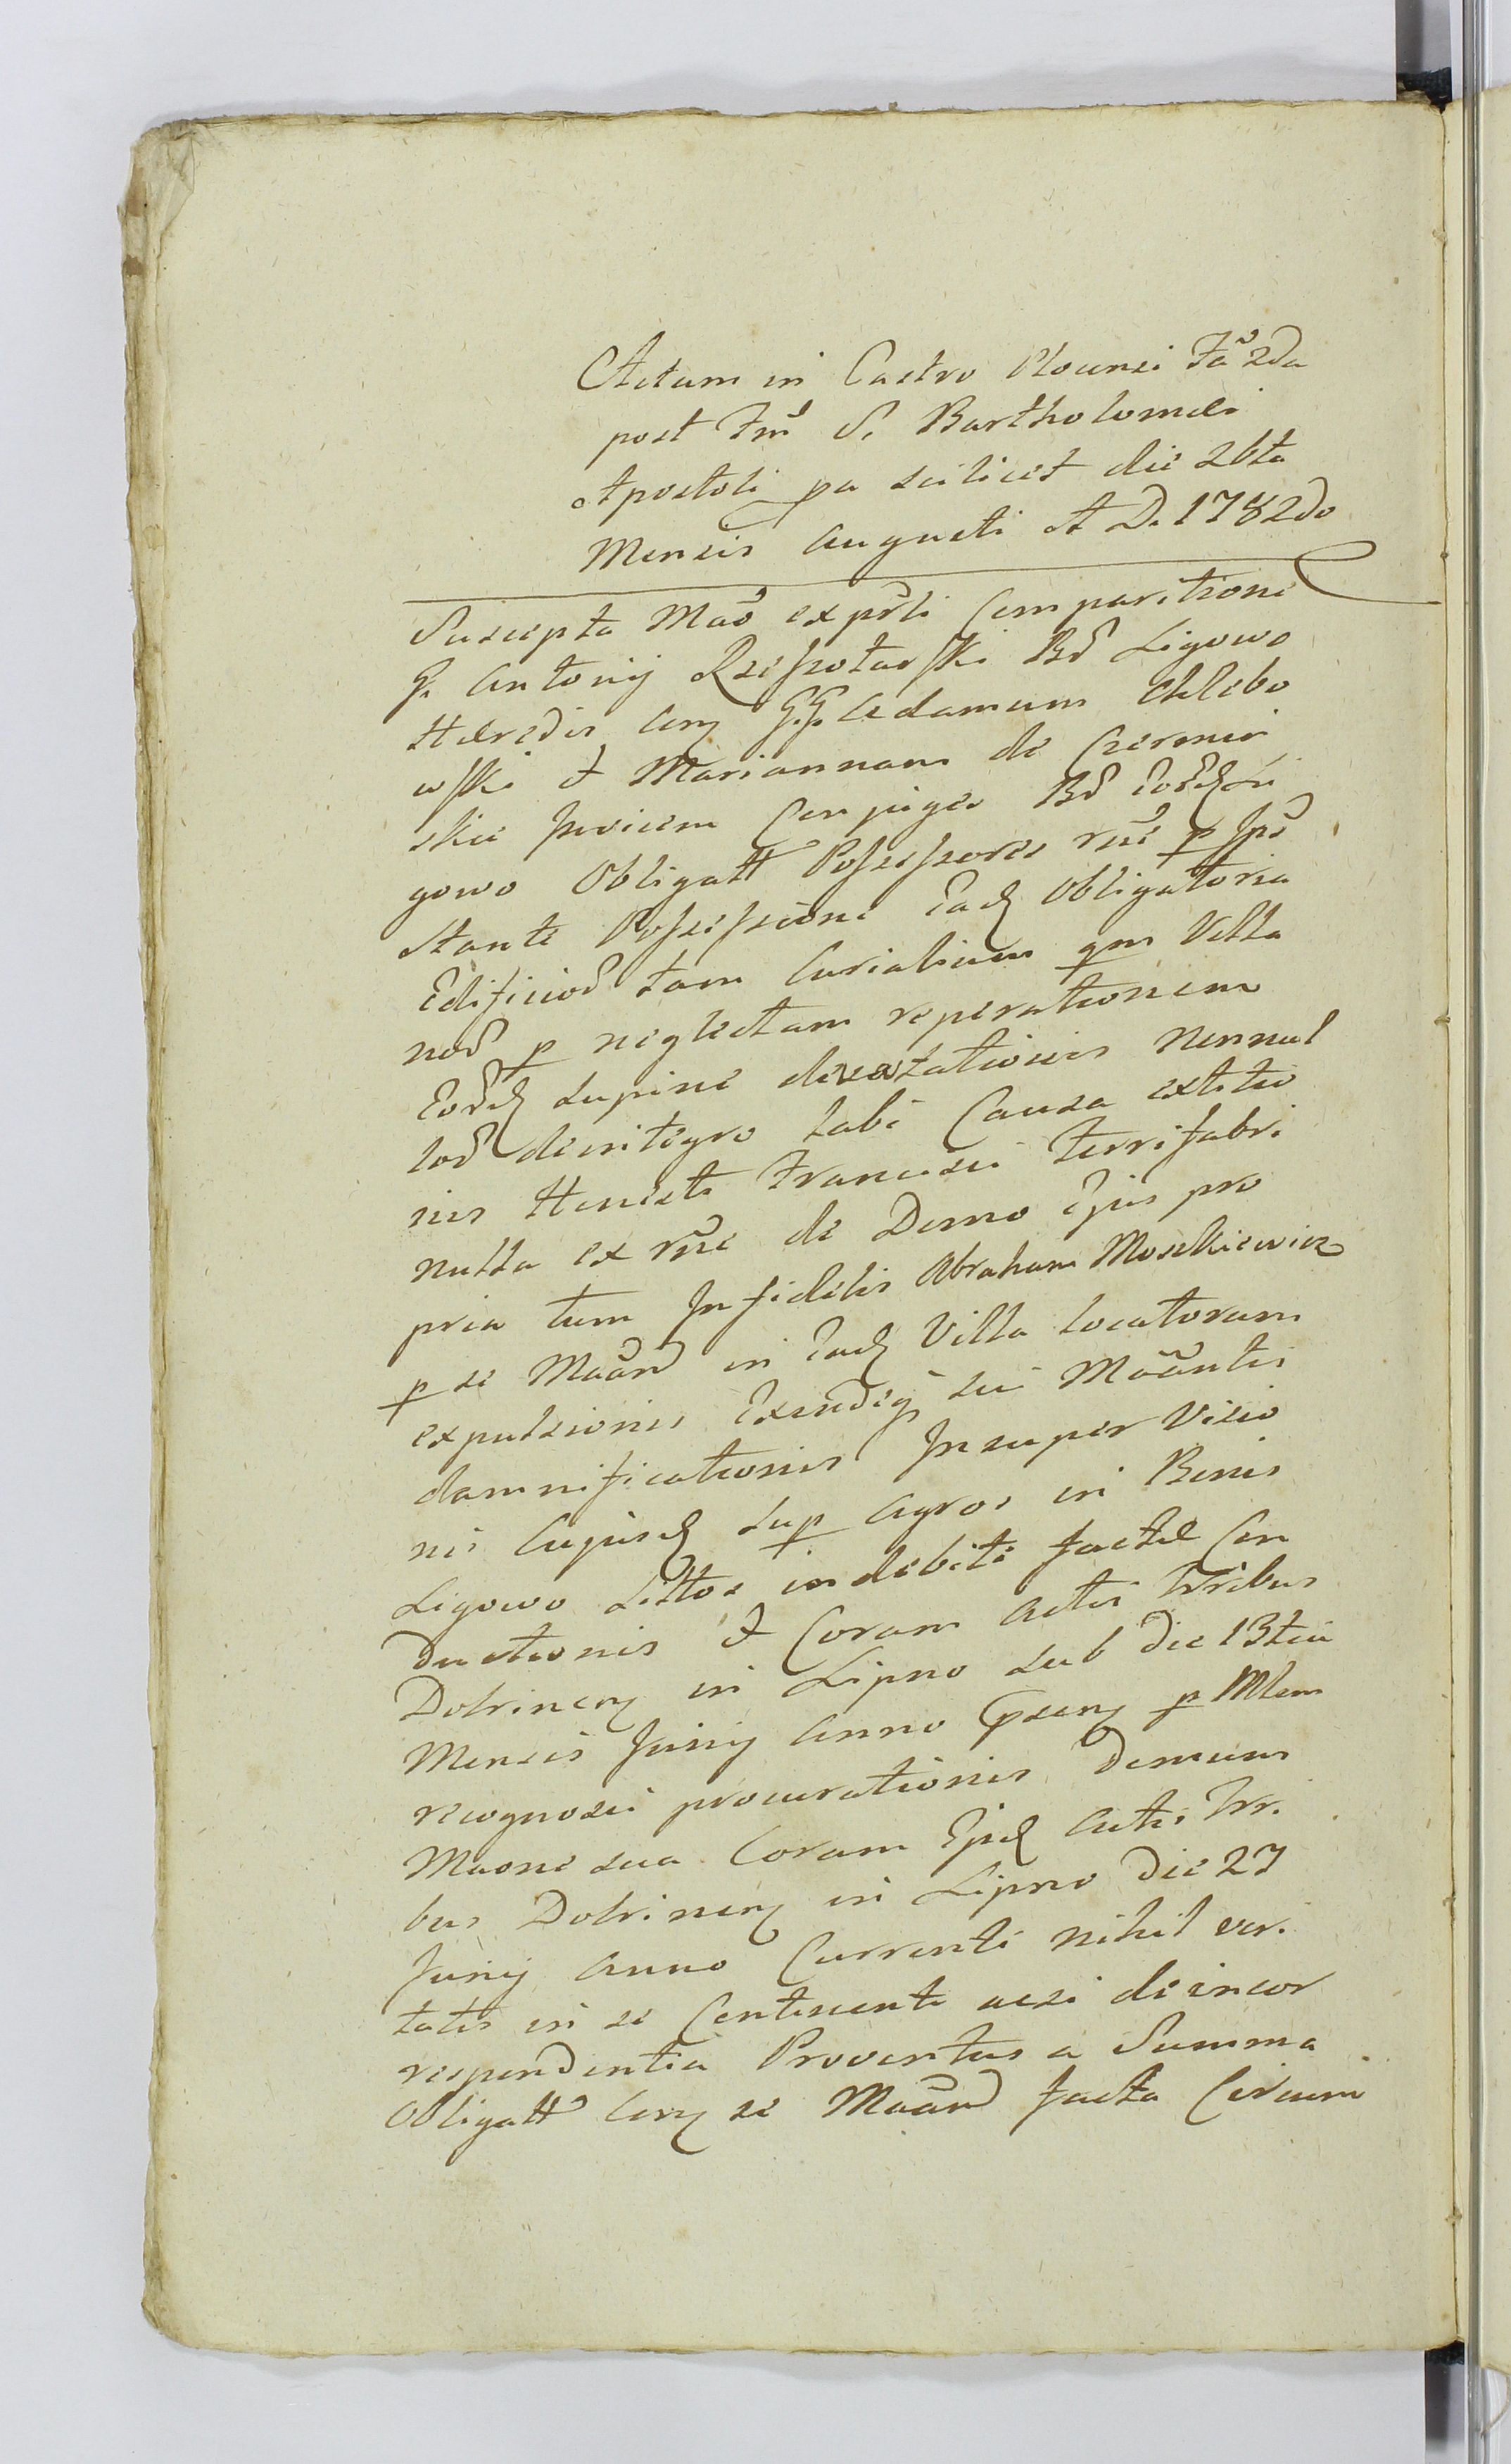 Actum in Castro Plocensi Fã 2da
post Fm̃ S. Bartholomæi
Apostoli pa scilicet die 26ta
Mensis Augusti A D. 1782do
Suscepta Maõ ex pṽli Comparitione
G. Antonij Rzeszotarski Bñ Ligowo
Hæredis Cnz GG. Adamum Chlebo
wski et Mariannam de Czermiń
skie Invicem Conjuges Bñ
gowo Obligatt Possessores rñe p Ipõ
stante Possessione Eadz Obligatoria
Edificioȓ tam Curialium qm Villa
noȓ p neglectam reperationem
Eoȓdz supine devastationis Nonnul
loȓ deintegro labi Causa extitio
nis Honesti Francisci Ferrifabri
nulla ex rñe de Domo Ejus pro
pria tum Infidelis Abraham Moszkiewicz
p se Maãn in Eadz Villa locatorum
expulsionis Exindeq sui Maãntis
damnificationis Insuper Visio
nis Cujusdz sup Agros in Bonis
Ligowo sittos indebite factæ Con
ductionis et Coram Actis Trribus
Dobrinenz in Lipno sub die 13tia
Mensis Junij Anno Psenz p Mtem
recognosci procurationis Demum
Maone sua Coram Ejsdz Actis Trri
bus Dobrinenz in Lipno Die 27
Junij Anno Currenti nihil veri
tatis in se Continenti acsi de incor
respondentia Proventus a Summa
Obligatt Cnz se Maãn facta Circum